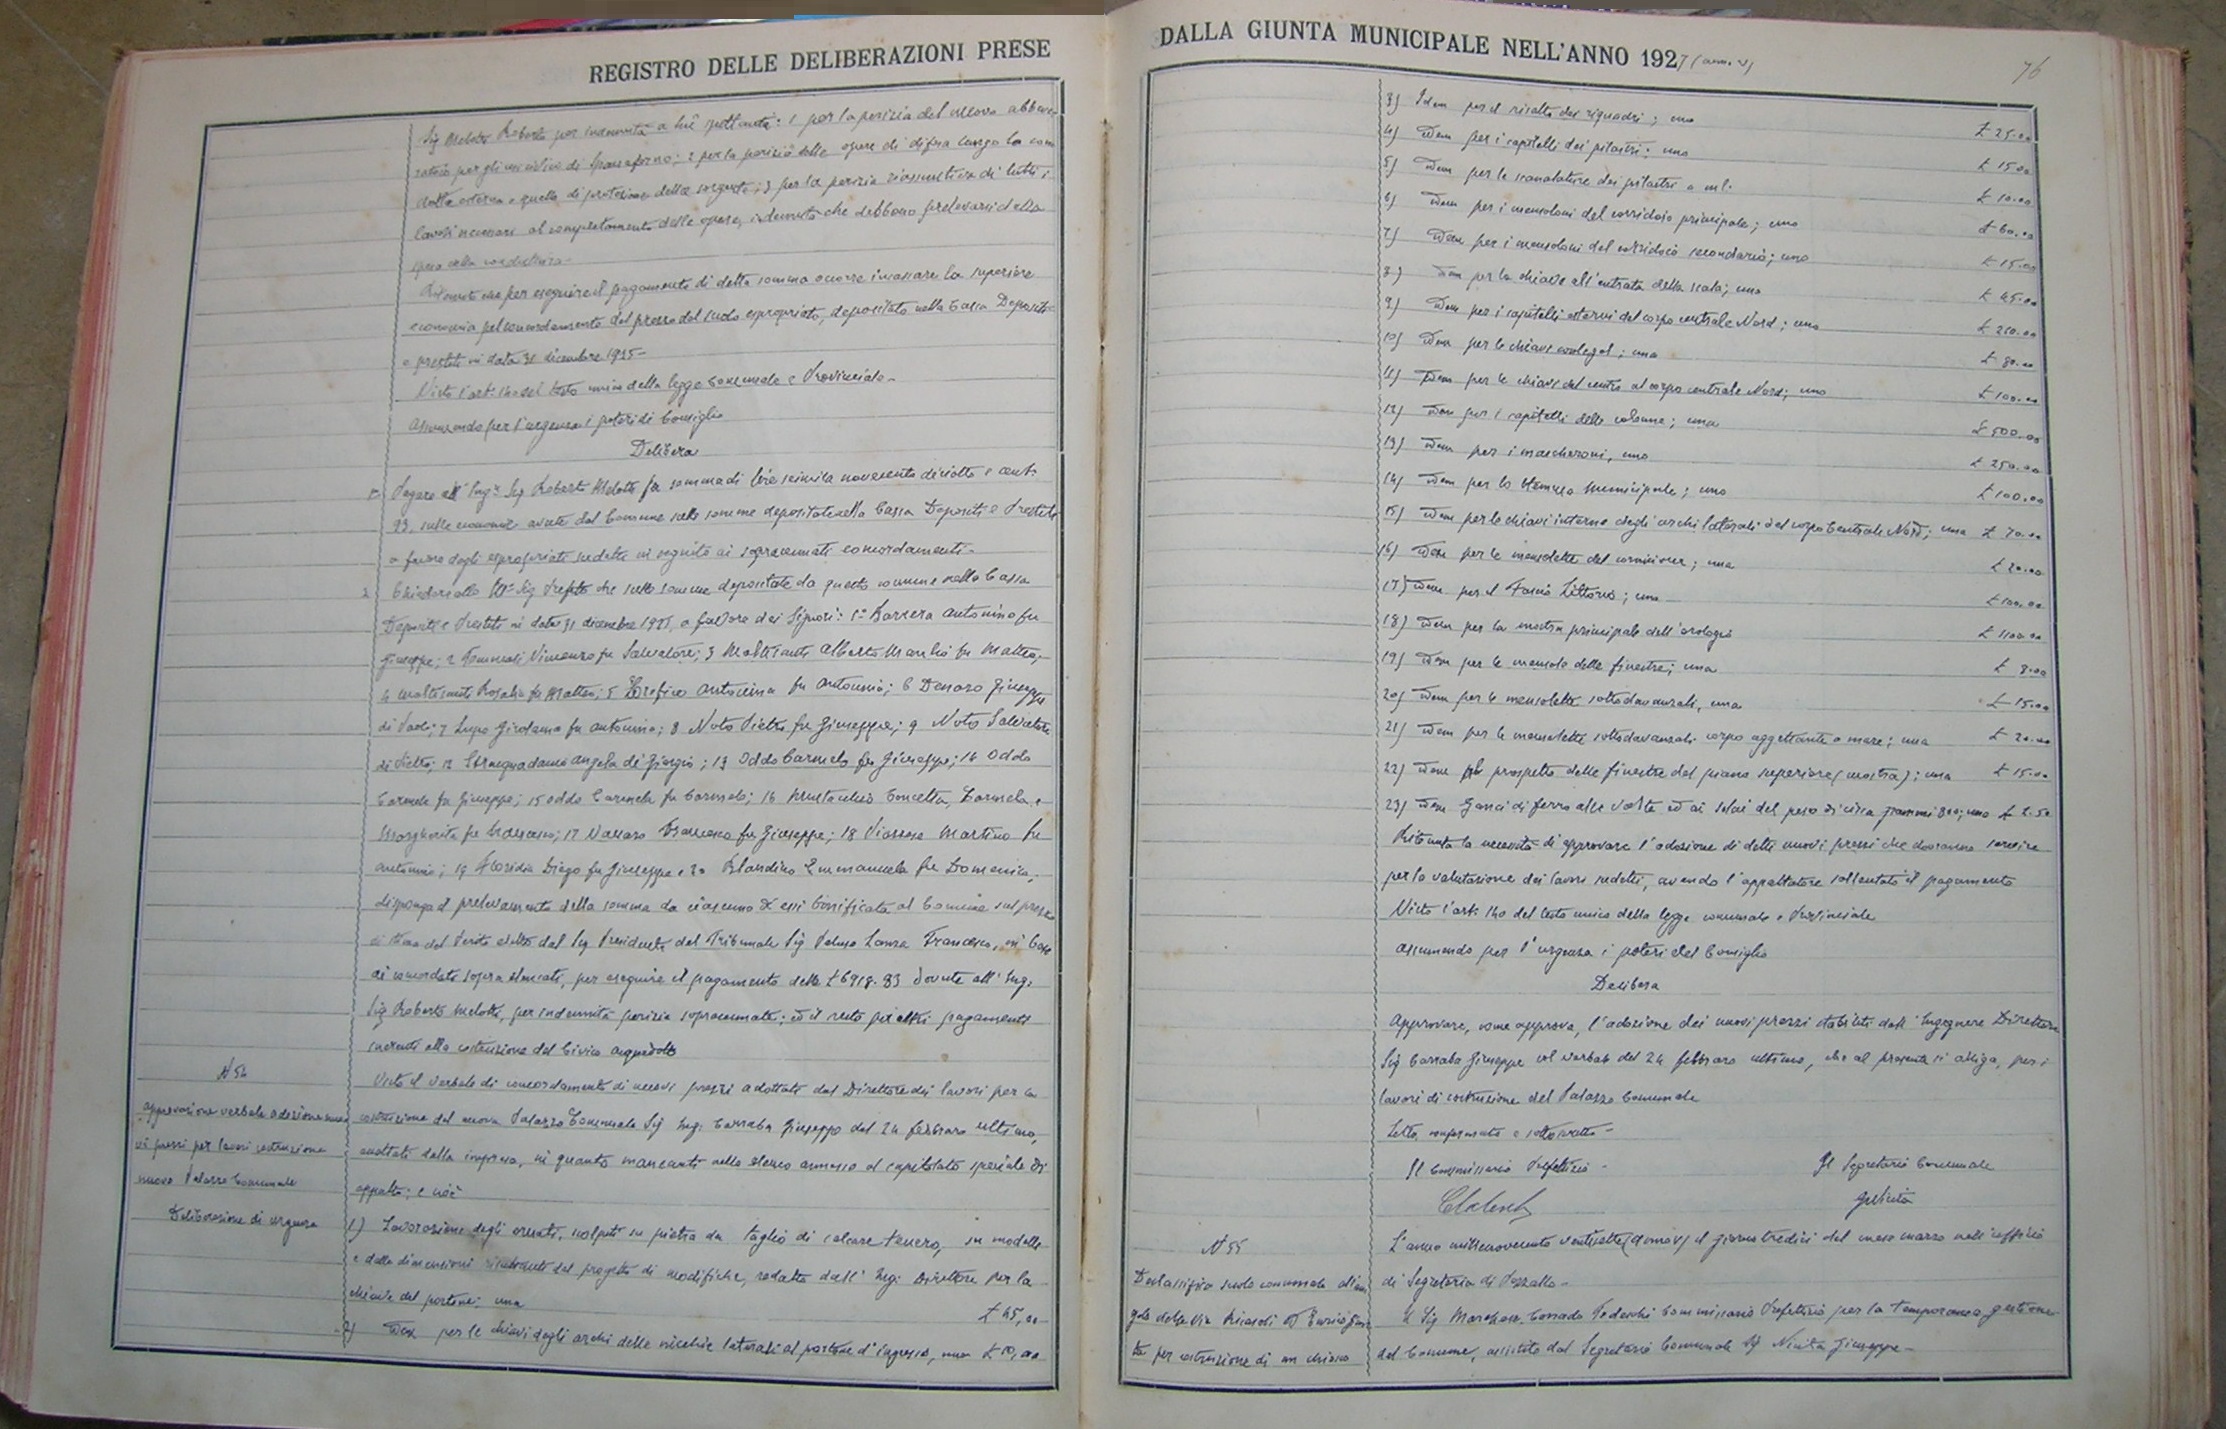 REGISTRO DELLE DELIBERAZIONI PRESE
Sig Melotti Roberto per indennità a lui spettante: 1 per la perizia del nuovo abbeve-
ratoio per gli usi civici di ; 2 per la perizia delle opere di difesa lungo la con-
dotta esterna e quella di protezione delle sorgenti; 3 per la perizia riassuntiva di tutti i
lavori necessari al completamento delle opere, indennità che debbono prelevarsi dalla
spesa della conduttura-
Ritenuto che per eseguire il pagamento di detta somma occorre incassare la superiore
economia pel concordamento del prezzo del suolo espropriato, depositato nella Cassa Depositi
e prestiti in data 31 dicembre 1925-
Visto l'art. 140 del testo unico della legge Comunale e Provinciale-
Assumendo per l'urgenza i poteri di Consiglio
Delibera
1° Pagare all'Ing.re Sig Roberto Melotti la somma di lire seimila novecento diciotto e cent.
93, sulle economie avute dal Comune sulle somme depositate nella Cassa Depositi e Prestiti
a favore degli espropriati sudetti in seguito ai sopracennati concordamenti-
2 Chiedere allo Ill° Sig Prefetto che sulle somme depositate da questo comune nella Cassa
Depositi e Prestiti in data 31 dicembre 1925, a favore dei Signori: 1° Barrera Antonino fu
Giuseppe; 2 Vincenzo fu Salvatore; 3 Maltisanti Alberto Manlio fu Matteo;
4 Maltisanti Rosalia fu Matteo; 5 Orefice Antonina fu Antonio; 6 Denaro Giuseppe
di Paolo; 7 Lupo Girolama fu Antonino; 8 Noto Pietro fu Giuseppe; 9 Noto Salvatore
di Pietro; 12 Stracquadanio Angela di Giorgio; 13 Oddo Carmelo fu Giuseppe; 14 Oddo
Carmela fu Giuseppe; 15 Oddo Carmela fu Carmelo; 16 Concetta, Carmela e
Margherita fu Francesco; 17 Francesco fu Giuseppe; 18 Martino fu
Antonio; 19 Floridia Diego fu Giuseppe e 20 Blandino Emmanuela fu Domenico,
disponga il prelevamento della somma da ciascuno di essi bonificata al Comune sul prezzo
di stima del Perito eletto dal Sig Presidente del Tribunale Sig Lanza Francesco, in base
ai concordati sopra elencati, per eseguire il pagamento delle £ 6918.93 dovute all'Ing.
Sig Roberto Melotti, per indennità perizie sopracennate; ed il resto per altri pagamenti
inerenti alla costruzione del Civico acquedotto
N 54
Approvazione verbale adozione nuo-
vi prezzi per lavori costruzione
nuovo Palazzo Comunale
Deliberazione di urgenza
Visto il verbale di concordamento di nuovi prezzi adottato dal Direttore dei lavori per la
costruzione del nuovo Palazzo Comunale Sig Ing: Carraba Giuseppe del 24 febbraro ultimo,
accettati dalla impresa, in quanto mancanti nello elenco annesso al capitolato speciale di
appalto; e cioè
1) Lavorazione degli ornati, scolpiti su pietra da taglio di calcare tenero, su modelli
e dalle dimensioni risultanti dal progetto di modifiche, redatto dall'Ing: Direttore per la
chiave del portone; una £ 45,00
2) Idem per le chiavi degli archi delle nicchie laterali al portone d'ingresso, una £ 10,00
DALLA GIUNTA MUNICIPALE NELL'ANNO 1927 (anno V)
76
3) Idem per il risalto dei riquadri; uno £ 25.00
4) Idem per i capitelli dei pilastri; uno £ 15.00
5) Idem per le scanalature dei pilastri a ml. £ 10.00
6) Idem per i mensoloni del corridoio principale; uno £ 60.00
7) Idem per i mensoloni del corridoio secondario; uno £ 15.00
8) Idem per la chiave all'entrata della scala; una £ 45.00
9) Idem per i capitelli esterni del corpo centrale Nord; uno £ 250.00
10) Idem per le chiavi ; una £ 80.00
11) Idem per le chiavi del centro al corpo centrale Nord; uno £ 100.00
12) Idem per i capitelli delle colonne; uno £ 500.00
13) Idem per i mascheroni, uno £ 250.00
14) Idem per lo stemma Municipale; uno £ 100.00
15) Idem per le chiavi interne degli archi laterali del corpo Centrale Nord; una £ 70.00
16) Idem per le mensolette del cornicione; una £ 20.00
17) Idem per il Fascio Littorio; uno £ 100.00
18) Idem per la mostra principale dell'orologio £ 1100.00
19) Idem per le mensole delle finestre; una £ 8.00
20) Idem per le mensolette sottodavanzali, una £ 15.00
21) Idem per le mensolette sottodavanzali corpo aggettante a mare; una £ 20.00
22) Idem pel prospetto delle finestre del piano superiore (mostra); una £ 15.00
23) Idem Ganci di ferro alle volte ed ai solai del peso di circa grammi 800; uno £ 2.50
Ritenuta la necessità di approvare l'adozione di detti nuovi prezzi che dovranno servire
per la valutazione dei lavori sudetti, avendo l'appaltatore sollecitato il pagamento
Visto l'art. 140 del testo unico della legge comunale e Provinciale
Assumendo per l'urgenza i poteri del Consiglio
Delibera
Approvare, come approva, l'adozione dei nuovi prezzi stabiliti dall'Ingegnere Direttore
Sig Carraba Giuseppe col verbale del 24 febbraro ultimo, che al presente si alliga, per i
lavori di costruzione del Palazzo Comunale
Letto, confermato e sottoscritto-
Il Commissario Prefettizio- Il Segretario Comunale
GNicita
N 55
Declassifica suolo comunale all'an-
golo delle Via Ricasoli e Enrico
per costruzione di un chiosco
L'anno millenovecento ventisette (anno V) il giorno tredici del mese marzo nell'ufficio
di Segreteria di Pozzallo-
Il Sig Marchese Corrado Tedeschi Commissario Prefettizio per la temporanea gestione
del Comune, assistito dal Segretario Comunale Sig Nicita Giuseppe-